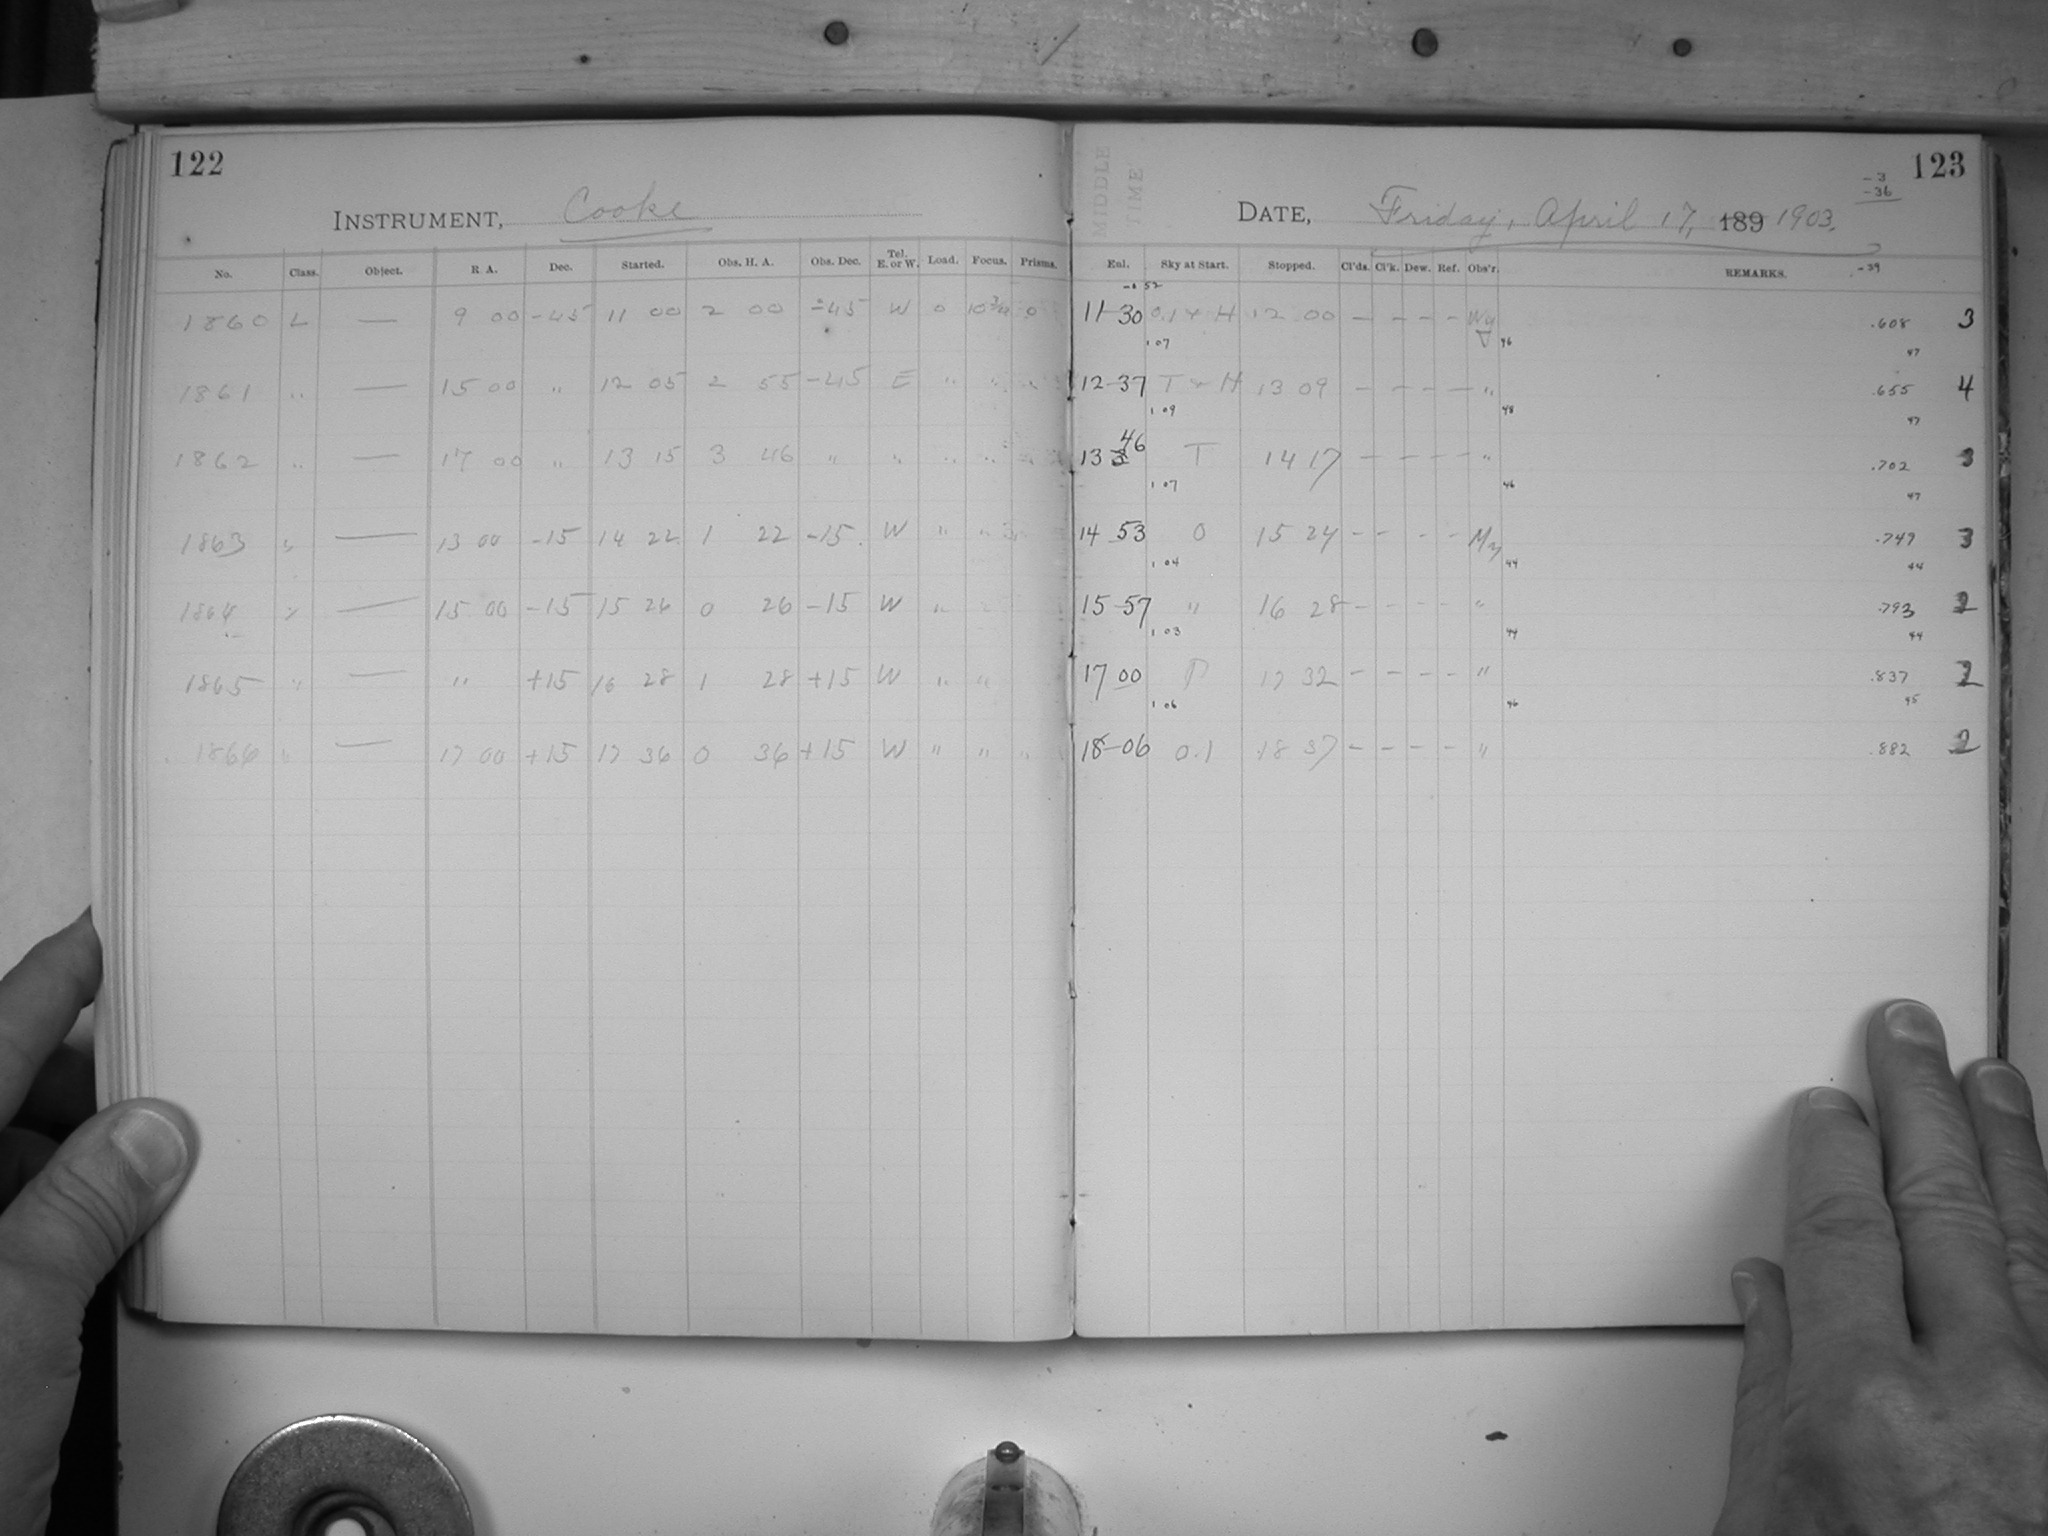 122
INSTRUMENT, Cooke
No. Class. Object. R. A. Dec. Started. Obs. H. A. Obs. Dec. Tel. E. or W. Load. Focus. Prisms.
1860 L — 9 00 -45 11 00 2 00 -45 W 0 10 3/4 0
1861 " — 15 00 " 12 05 2 55 -45 E " " "
1862 " — 17 00 " 13 15 3 46 " " " " "
1863 " — 13 00 -15 14 22 1 22 -15 W " "
1864 " — 15 00 -15 15 26 0 26 -15 W "
1865 " — " +15 16 28 1 28 +15 W " "
1866 " — 17 00 +15 17 36 0 36 +15 W " " "
MIDDLE TIME
123
-3
-36
DATE, Friday, April 17, 189 1903.
-39
Exl. Sky at Start. Stopped. Cl'ds. Cl'k. Dew. Ref. Obs'r. REMARKS.
52
11-30 0.1 + H 12 00 — — — — Wy .608 3
1 07 46 47
12-37 T + H 13 09 — — — — " .655 4
1 09 48 47
46
13 T 14 17 — — — — " .702 3
1 07 46 47
14 53 0 15 24 — — — — My .749 3
1 04 44 44
15-57 " 16 28 — — — — " .793 2
1 03 44 44
17 00 17 32 — — — — " .837 2
1 06 46 45
18-06 0.1 18 37 — — — — " .882 2